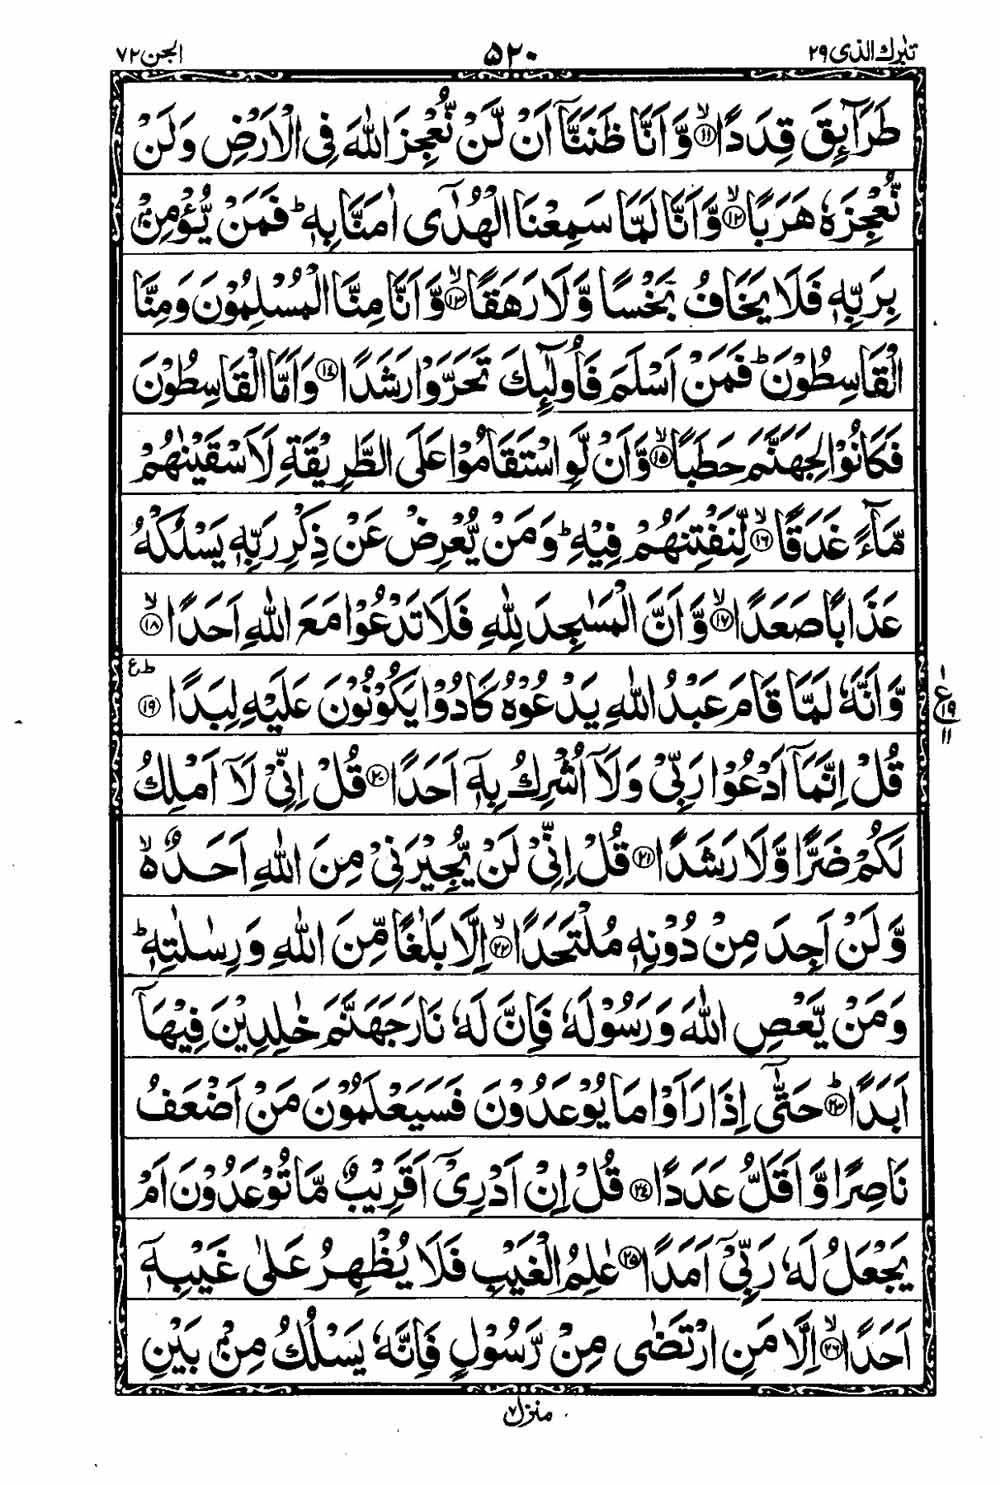 تبٰرك الذی ۲۹ ۵۲۰ الجن ۷۲
طَرَآئِقَ قِدَدًا ۙ﴿۱۱﴾ وَّ اَنَّا ظَنَنَّاۤ اَنْ لَّنْ نُّعْجِزَ اللّٰهَ فِی الْاَرْضِ وَ لَنْ
نُّعْجِزَهٗ هَرَبًا ۙ﴿۱۲﴾ وَّ اَنَّا لَمَّا سَمِعْنَا الْهُدٰۤی اٰمَنَّا بِهٖ ؕ فَمَنْ یُّؤْمِنْۢ
بِرَبِّهٖ فَلَا یَخَافُ بَخْسًا وَّ لَا رَهَقًا ۙ﴿۱۳﴾ وَّ اَنَّا مِنَّا الْمُسْلِمُوْنَ وَ مِنَّا
الْقٰسِطُوْنَ ؕ فَمَنْ اَسْلَمَ فَاُولٰٓئِكَ تَحَرَّوْا رَشَدًا ﴿۱۴﴾ وَ اَمَّا الْقَاسِطُوْنَ
فَكَانُوْا لِجَهَنَّمَ حَطَبًا ۙ﴿۱۵﴾ وَّ اَنْ لَّوِ اسْتَقَامُوْا عَلَی الطَّرِیْقَةِ لَاَسْقَیْنٰهُمْ
مَّآءً غَدَقًا ۙ﴿۱۶﴾ لِّنَفْتِنَهُمْ فِیْهِ ؕ وَ مَنْ یُّعْرِضْ عَنْ ذِكْرِ رَبِّهٖ یَسْلُكْهُ
عَذَابًا صَعَدًا ۙ﴿۱۷﴾ وَّ اَنَّ الْمَسٰجِدَ لِلّٰهِ فَلَا تَدْعُوْا مَعَ اللّٰهِ اَحَدًا ۙ﴿۱۸﴾
وَّ اَنَّهٗ لَمَّا قَامَ عَبْدُ اللّٰهِ یَدْعُوْهُ كَادُوْا یَكُوْنُوْنَ عَلَیْهِ لِبَدًا ؕع﴿۱۹﴾
ع ۱ ۱۹ ۱۱
قُلْ اِنَّمَاۤ اَدْعُوْا رَبِّیْ وَ لَاۤ اُشْرِكُ بِهٖۤ اَحَدًا ﴿۲۰﴾ قُلْ اِنِّیْ لَاۤ اَمْلِكُ
لَكُمْ ضَرًّا وَّ لَا رَشَدًا ﴿۲۱﴾ قُلْ اِنِّیْ لَنْ یُّجِیْرَنِیْ مِنَ اللّٰهِ اَحَدٌ ۙ۬
وَّ لَنْ اَجِدَ مِنْ دُوْنِهٖ مُلْتَحَدًا ۙ﴿۲۲﴾ اِلَّا بَلٰغًا مِّنَ اللّٰهِ وَ رِسٰلٰتِهٖ ؕ
وَ مَنْ یَّعْصِ اللّٰهَ وَ رَسُوْلَهٗ فَاِنَّ لَهٗ نَارَ جَهَنَّمَ خٰلِدِیْنَ فِیْهَاۤ
اَبَدًا ؕ﴿۲۳﴾ حَتّٰۤی اِذَا رَاَوْا مَا یُوْعَدُوْنَ فَسَیَعْلَمُوْنَ مَنْ اَضْعَفُ
نَاصِرًا وَّ اَقَلُّ عَدَدًا ﴿۲۴﴾ قُلْ اِنْ اَدْرِیْۤ اَقَرِیْبٌ مَّا تُوْعَدُوْنَ اَمْ
یَجْعَلُ لَهٗ رَبِّیْۤ اَمَدًا ﴿۲۵﴾ عٰلِمُ الْغَیْبِ فَلَا یُظْهِرُ عَلٰی غَیْبِهٖۤ
اَحَدًا ۙ﴿۲۶﴾ اِلَّا مَنِ ارْتَضٰی مِنْ رَّسُوْلٍ فَاِنَّهٗ یَسْلُكُ مِنْۢ بَیْنِ
منزل ۷